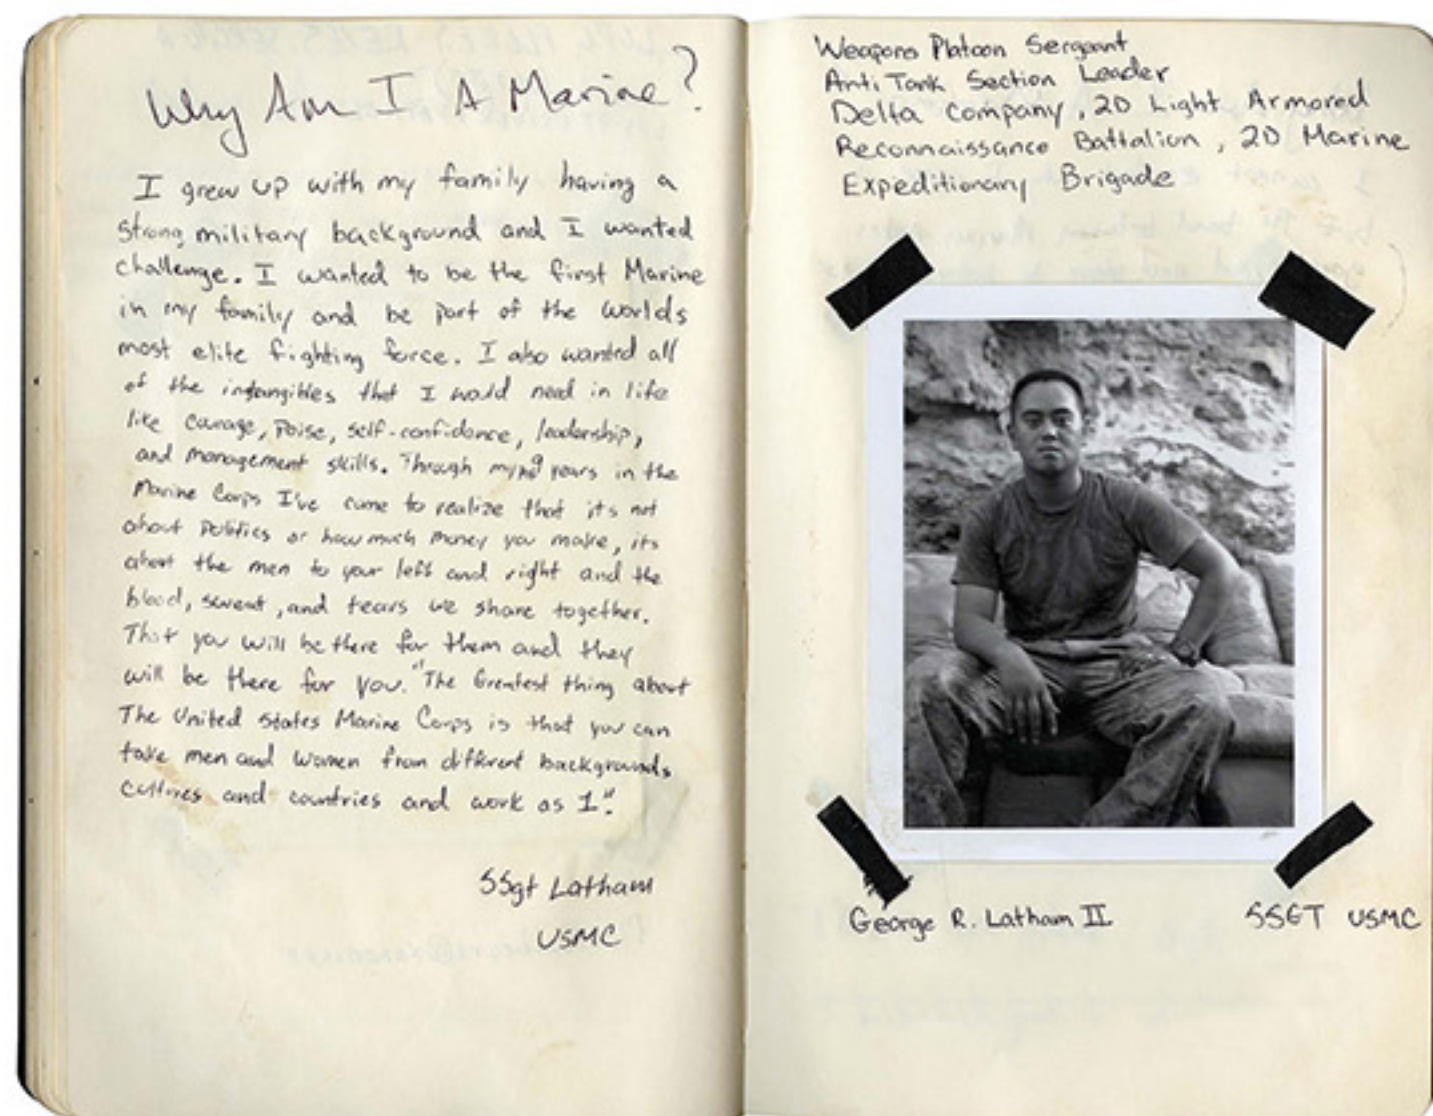 Why Am I A Marine?
I grew up with my family having a
strong military background and I wanted
challenge. I wanted to be the first Marine
in my family and be part of the worlds
most elite fighting force. I also wanted all
of the intangibles that I would need in life
like courage, poise, self-confidence, leadership,
and management skills. Through my 9 years in the
Marine Corps I've came to realize that its not
about politics or how much money you make, its
about the men to your left and right and the
blood, sweat, and tears we share together.
That you will be there for them and they
will be there for you. "The Greatest thing about
The United States Marine Corps is that you can
take men and women from different backgrounds
cultures and countries and work as 1".
SSgt Latham
USMC
Weapons Platoon Sergeant
Anti Tank Section Leader
Delta Company, 2D Light Armored
Reconnaissance Battalion, 2D Marine
Expeditionary Brigade
George R. Latham II SSGT USMC